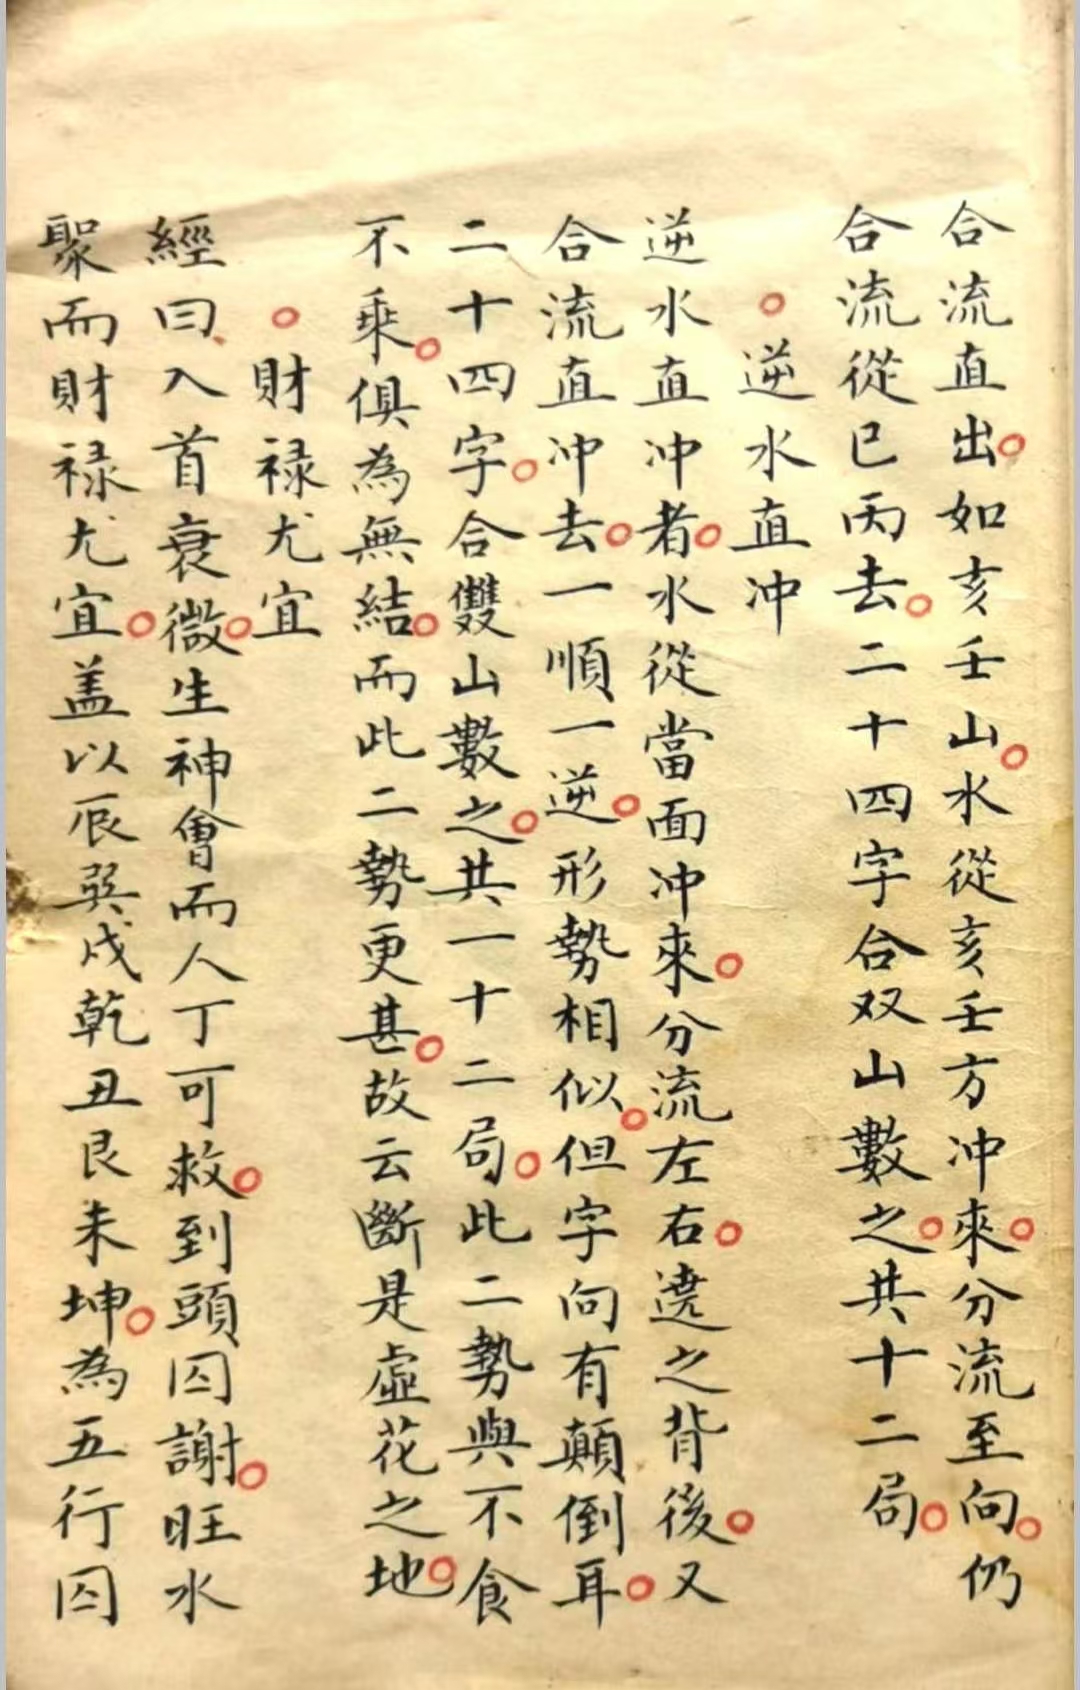 合流直出。如亥壬山。水從亥壬方冲來。分流至向。仍
合流從巳丙去。二十四字合双山數之。共十二局。
。逆水直冲
逆水直冲者。水從當面冲來。分流左右。遶之背後。又
合流直冲去。一順一逆。形勢相似。但字向有顛倒耳。
二十四字。合雙山數之。共一十二局。此二勢與不食
不乘。俱為無結。而此二勢更甚。故云斷是虛花之地。
。財禄尤宜
經曰、入首衰微。生神會而人丁可救。到頭囚謝。旺水
聚而財禄尤宜。盖以辰巽戌乾丑艮未坤。為五行囚